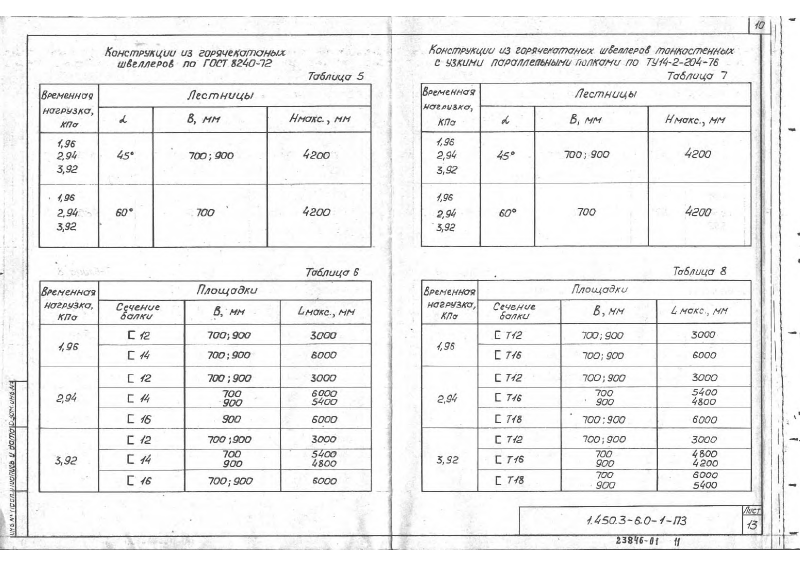 10
Конструкции из горячекатаных
швеллеров по ГОСТ 8240-72
Таблица 5
Временная нагрузка, кПа
Лестницы
α В, мм Нмакс., мм
1,96
2,94 45° 700; 900 4200
3,92
1,96
2,94 60° 700 4200
3,92
Таблица 6
Временная нагрузка, кПа
Площадки
Сечение балки В, мм Lмакс., мм
1,96
[ 12 700; 900 3000
[ 14 700; 900 6000
2,94
[ 12 700; 900 3000
[ 14 700 6000
900 5400
[ 16 900 6000
3,92
[ 12 700; 900 3000
[ 14 700 5400
900 4800
[ 16 700; 900 6000
Конструкции из горячекатаных швеллеров тонкостенных
с узкими параллельными полками по ТУ14-2-204-76
Таблица 7
Временная нагрузка, кПа
Лестницы
α В, мм Нмакс., мм
1,96
2,94 45° 700; 900 4200
3,92
1,96
2,94 60° 700 4200
3,92
Таблица 8
Временная нагрузка, кПа
Площадки
Сечение балки В, мм Lмакс., мм
1,96
[ Т12 700; 900 3000
[ Т16 700; 900 6000
2,94
[ Т12 700; 900 3000
[ Т16 700 5400
900 4800
[ Т18 700; 900 6000
3,92
[ Т12 700; 900 3000
[ Т16 700 4800
900 4200
[ Т18 700 6000
900 5400
1.450.3-6.0-1-ПЗ
Лист
13
23846-01 11
Инв.№ подл. Подпись и дата